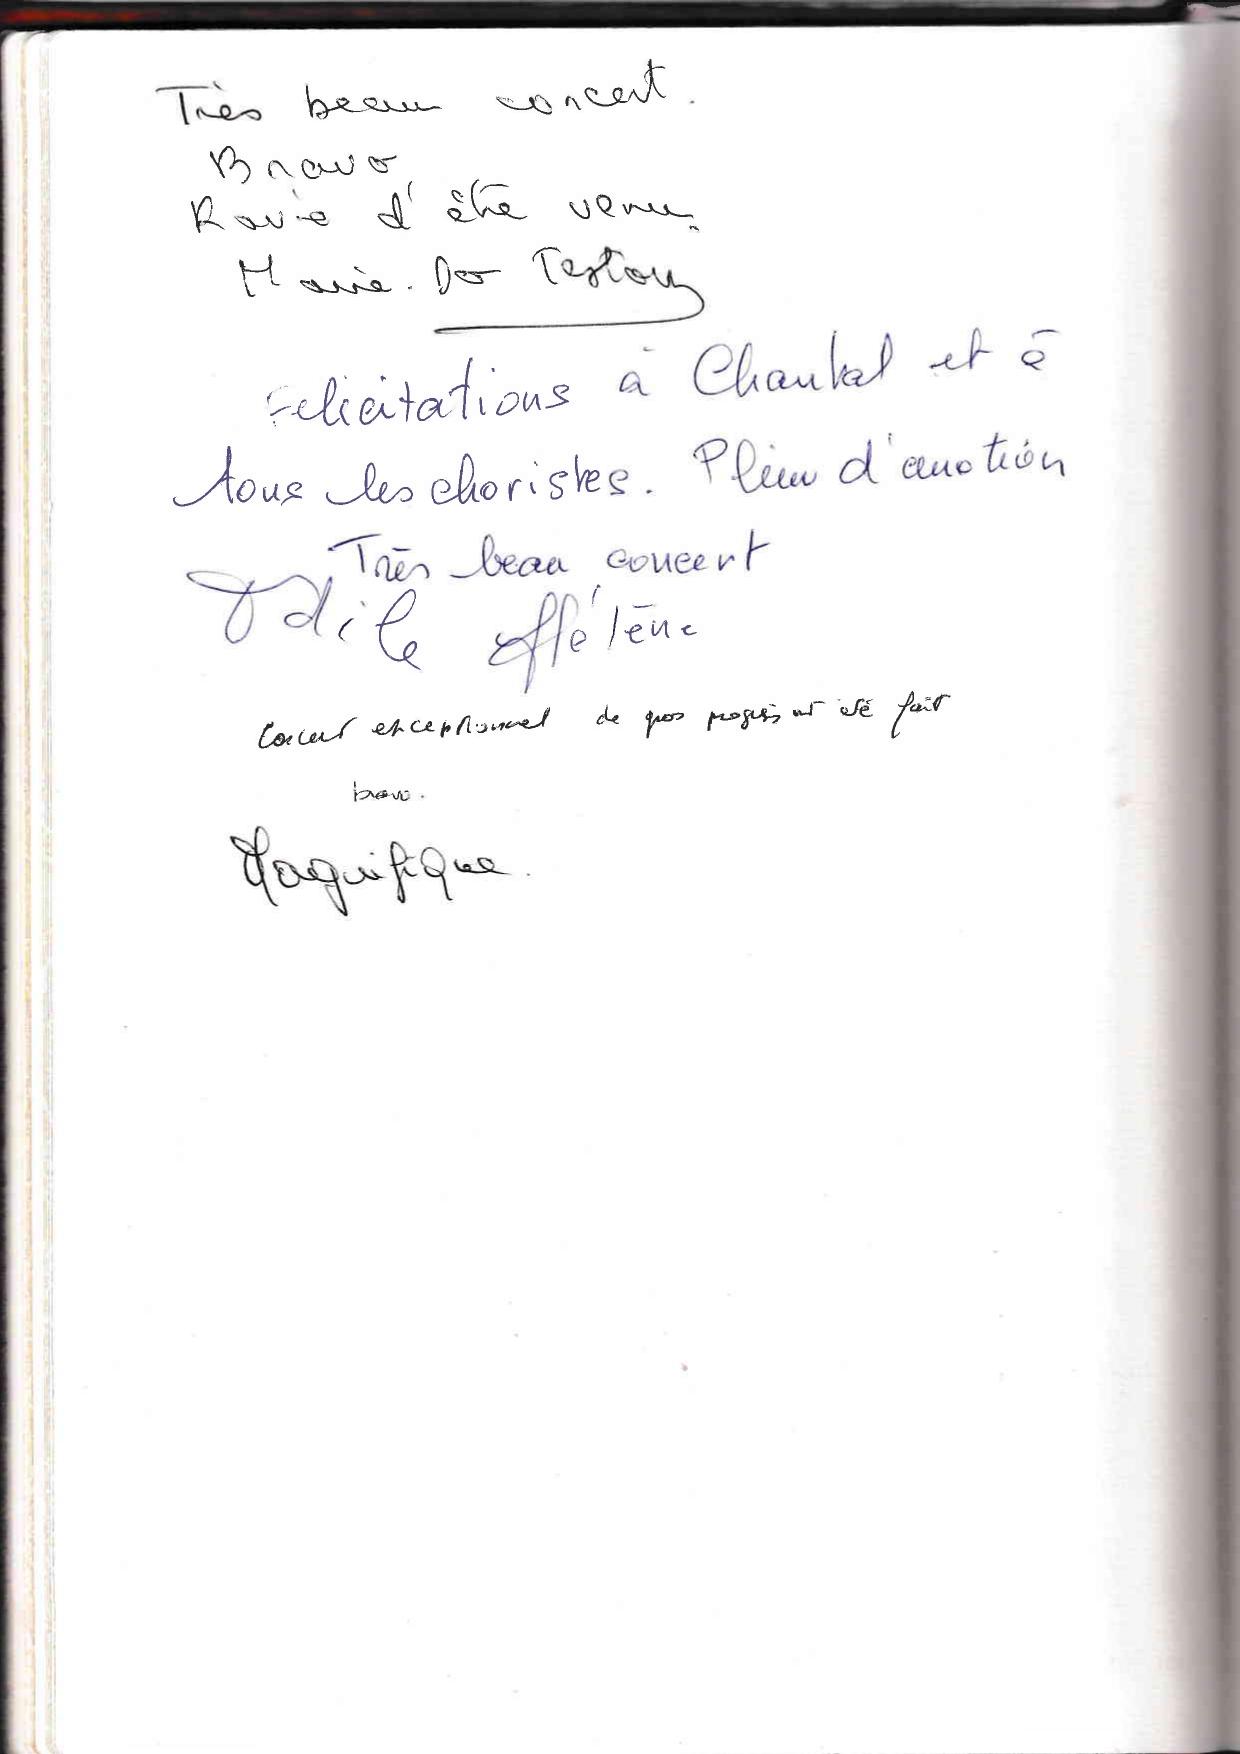 Très beau concert.
Bravo
Ravie d'être venue.
Marie. Do
Félicitations à Chantal et à
tous les choristes. Plein d'émotion
Très beau concert
Odile
Concert exceptionnel de gros progrès ont été fait
bravo.
Magnifique.